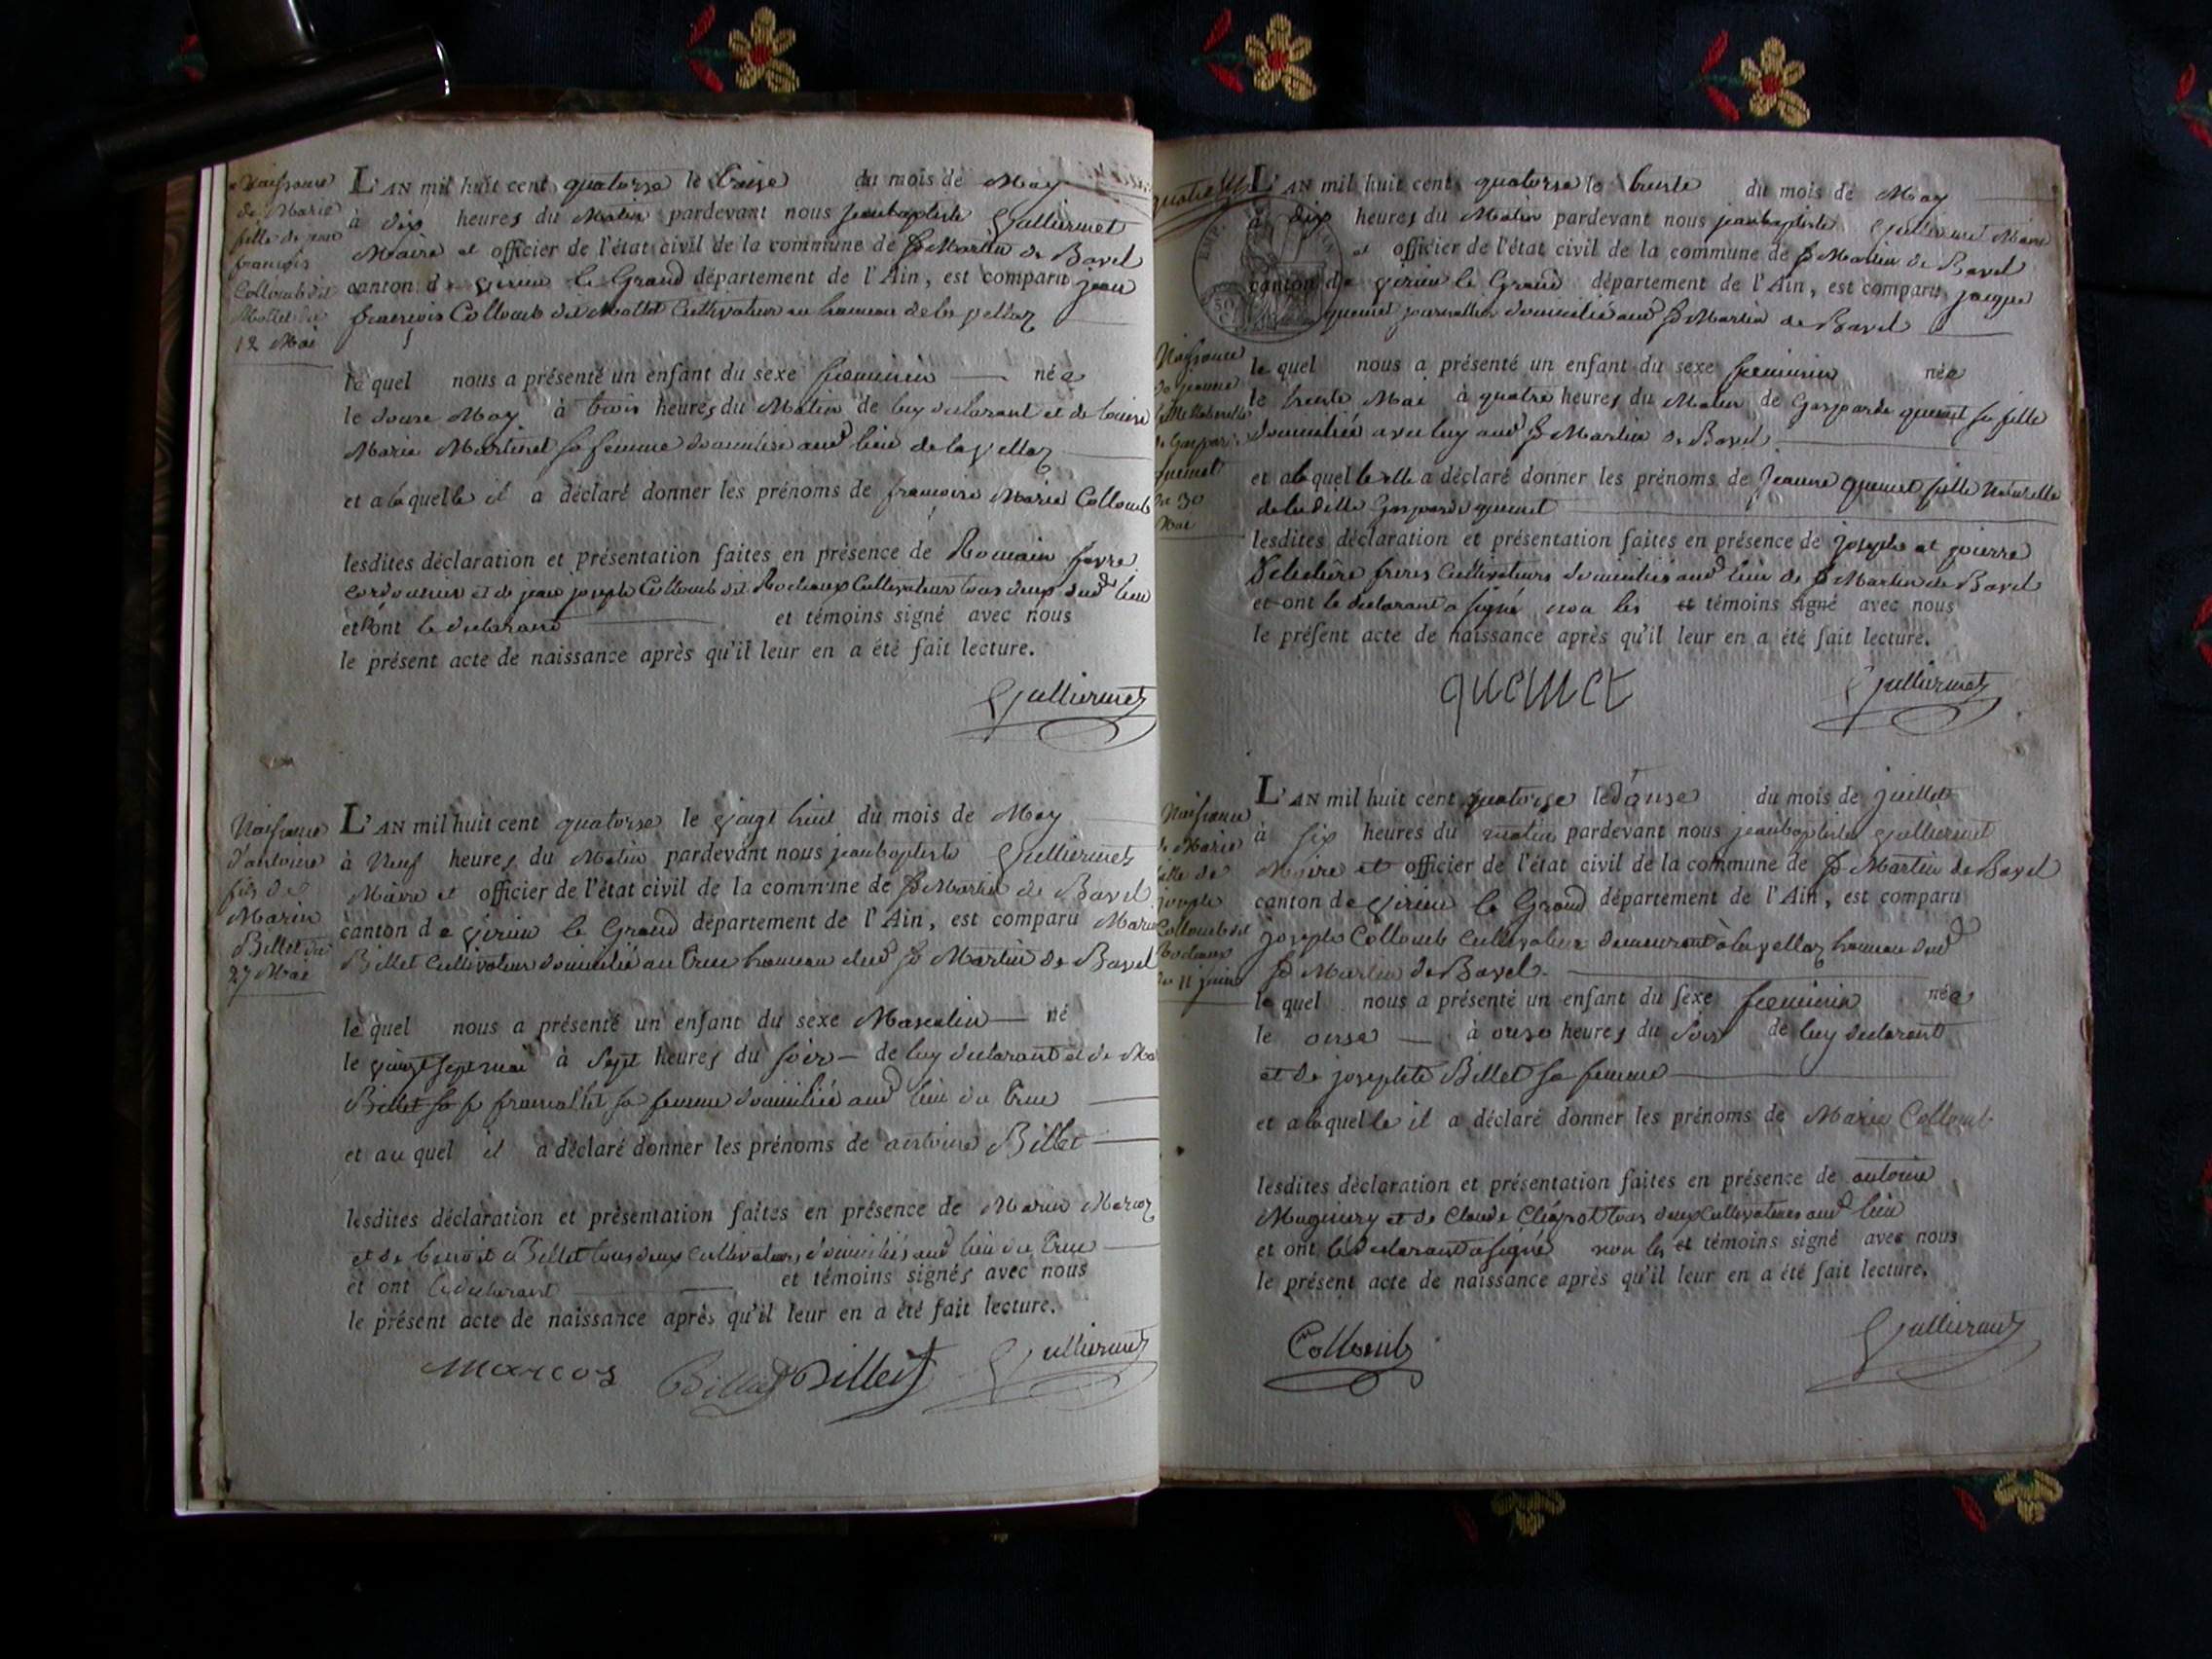 Naissance
de Marie
fille de jean
françois
Collomb dit
Mollet du
12 Mai
L'AN mil huit cent quatorse le treise du mois de May
à dix heures du Matin pardevant nous jeanbaptiste Gulliermet
Maire et officier de l'état civil de la commune de St Martin de Bavel
canton de virieu le Grand département de l'Ain, est comparu jean
françois Collomb dit Mollet Cultivateur au hameau de la vellaz
le quel nous a présenté un enfant du sexe feminin née
le douse May à trois heures du Matin de luy declarant et de louise
Marie Martinet sa femme domiciliée aud lieu de la vellaz
et a laquelle il a déclaré donner les prénoms de françoise Marie Collomb
lesdites déclaration et présentation faites en présence de Romain favre
cordonnier et de jean joseph Collomb dit Rodeaux Cultivateur tous deux dud lieu
et ont le declarant et témoins signé avec nous
le présent acte de naissance après qu'il leur en a été fait lecture.
Gulliermet
Naissance
d'antoine
fils de
Marin
Billet du
27 Mai
L'AN mil huit cent quatorse le vingt huit du mois de May
à Neuf heures du Matin pardevant nous jeanbaptiste Gulliermet
Maire et officier de l'état civil de la commune de St Martin de Bavel
canton de virieu le Grand département de l'Ain, est comparu Marin
Billet Cultivateur domicilié au Truc hameau dud St Martin de Bavel
le quel nous a présenté un enfant du sexe Masculin né
le vingt sept mai à Sept heures du soir de luy declarant et de
Billet sa femme domiciliée aud lieu du Truc
et au quel il a déclaré donner les prénoms de antoine Billet
lesdites déclaration et présentation faites en présence de Marin Marcoz
et de benoit Billet tous deux Cultivateurs domiciliés aud lieu du Truc
et ont le declarant et témoins signés avec nous
le présent acte de naissance après qu'il leur en a été fait lecture.
Marcos Billet Billet Gulliermet
L'AN mil huit cent quatorse le trente du mois de May
à dix heures du Matin pardevant nous jeanbaptiste Gulliermet Maire
et officier de l'état civil de la commune de St Martin de Bavel
canton de virieu le Grand département de l'Ain, est comparu jacque
quenet journallier domicilié aud St Martin de Bavel
Naissance
de jeanne
fille Naturelle
de Gasparde
quenet
du 30
Mai
le quel nous a présenté un enfant du sexe feminin née
le trente Mai à quatre heures du Matin de Gasparde quenet sa fille
domiciliée avec luy aud St Martin de Bavel
et a laquelle elle a déclaré donner les prénoms de Jeanne quenet fille Naturelle
de ladite Gasparde quenet
lesdites déclaration et présentation faites en présence de joseph et pierre
freres Cultivateurs domiciliés aud lieu de St Martin de Bavel
et ont le declarant a signé non les et témoins signé avec nous
le présent acte de naissance après qu'il leur en a été fait lecture.
quenet Gulliermet
Naissance
de Marie
fille de
joseph
Collomb dit
Rodeaux
du 11 juin
L'AN mil huit cent quatorse le douse du mois de juillet
à six heures du matin pardevant nous jeanbaptiste Gulliermet
Maire et officier de l'état civil de la commune de St Martin de Bavel
canton de virieu le Grand département de l'Ain, est comparu
joseph Collomb Cultivateur demeurant à la vellaz hameau dud
St Martin de Bavel
le quel nous a présenté un enfant du sexe feminin née
le onse à onse heures du soir de luy declarant
et de josephte Billet sa femme
et a laquelle il a déclaré donner les prénoms de Marie Collomb
lesdites déclaration et présentation faites en présence de antoine
Mugniery et de Claude tous deux Cultivateurs aud lieu
et ont le declarant a signé non les et témoins signé avec nous
le présent acte de naissance après qu'il leur en a été fait lecture.
Collomb Gulliermet